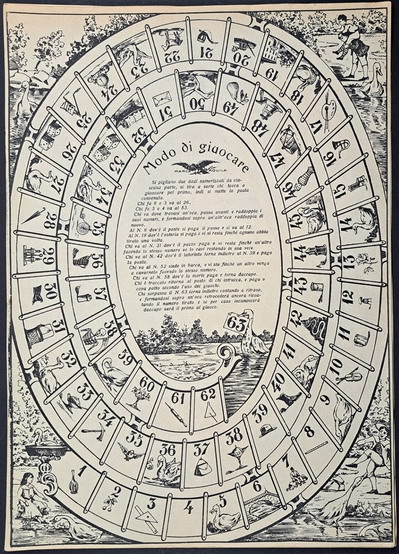 Modo di giuocare
MARCA AQUILA
Si pigliano due dadi numerizzati da cia-
scuna parte, si tira a sorte chi tocca a
giuocare pel primo, indi si mette la posta
convenuta.
Chi fa 6 e 3 va al 26.
Chi fa 5 e 4 va al 53.
Chi va dove trovasi un'oca, passa avanti e raddoppia i
suoi numeri, e fermandosi sopra un'altr'oca raddoppia di
nuovo.
Al N. 6 dov'è il ponte si paga il passo e si va al 12.
Al N. 19 dov'è l'osteria si paga e vi si resta finchè ognuno abbia
tirato una volta.
Chi va al N. 31 dov'è il pozzo paga e vi si resta finchè un'altro
facendo lo stesso numero se lo cavi restando in sua vece.
Chi va al N. 42 dov'è il laberinto torna indietro al N. 39 e paga
la posta.
Chi va al N. 52 siede in barca, e vi sta finchè un altro venga
e rimanendo facendo lo stesso numero.
Chi va al N. 58 dov'è la morte paga e torna daccapo.
Chi è truccato ritorna al posto di chi strucca, e paga o
cosa patto secondo l'uso dei giuochi.
Chi sorpassa il N. 63 torna indietro contando a ritroso,
e fermandosi sopra un'oca retrocederà ancora rican-
tando il numero tirato e se per caso incominciarà
daccapo sarà il primo al giuoco.
1
2
3
4
5
6
7
8
9
10
11
12
13
14
15
16
17
18
19
20
21
22
23
24
25
26
27
28
29
30
31
32
33
34
35
36
37
38
39
40
41
42
43
44
45
46
47
48
49
50
51
52
53
54
55
56
57
58
59
60
61
62
63